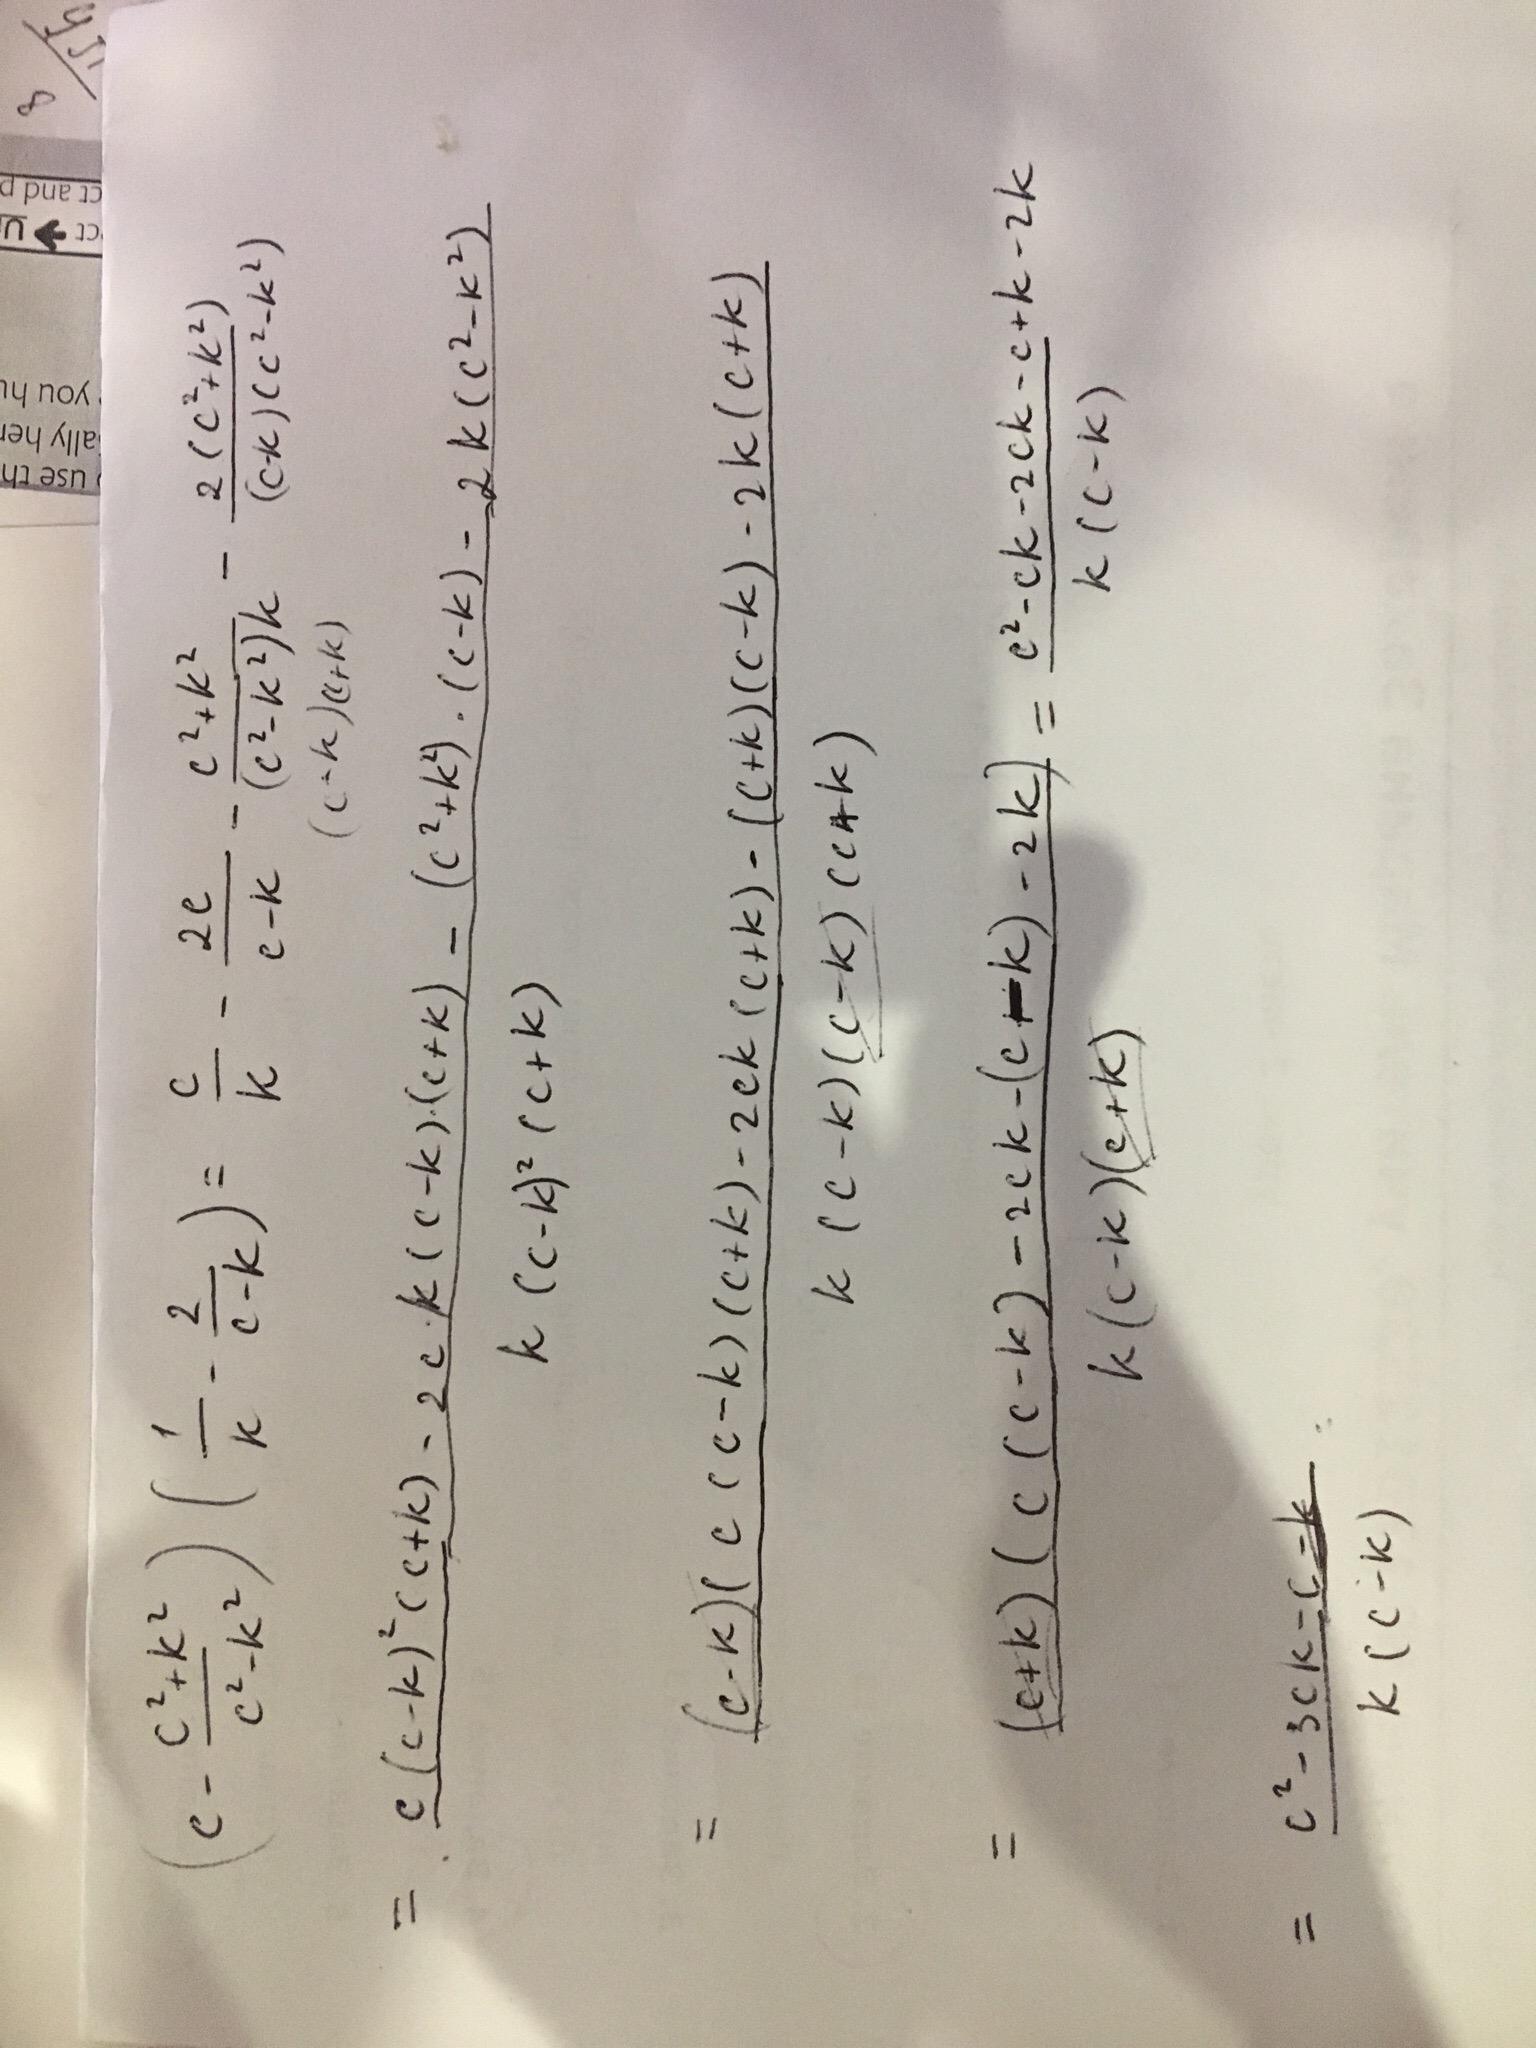 (c - \frac{c²+k²}{c²-k²}) (\frac{1}{k} - \frac{2}{c-k}) = \frac{c}{k} - \frac{2c}{c-k} - \frac{c²+k²}{(c²-k²)k} - \frac{2(c²+k²)}{(c-k)(c²-k²)}
(c-k)(c+k)
= \frac{c(c-k)²(c+k) - 2c·k(c-k)·(c+k) - (c²+k²)·(c-k) - 2k(c²-k²)}{k(c-k)²(c+k)}
= \frac{(c-k)(c(c-k)(c+k) - 2ck(c+k) - (c+k)(c-k) - 2k(c+k)}{k(c-k)(c-k)(c+k)}
= \frac{(c+k)(c(c-k) - 2ck - (c-k) - 2k)}{k(c-k)(c+k)} = \frac{c²-ck-2ck-c+k-2k}{k(c-k)}
= \frac{c²-3ck-c-k}{k(c-k)}
8
ct and p
ct → U
you hu
ally her
use th